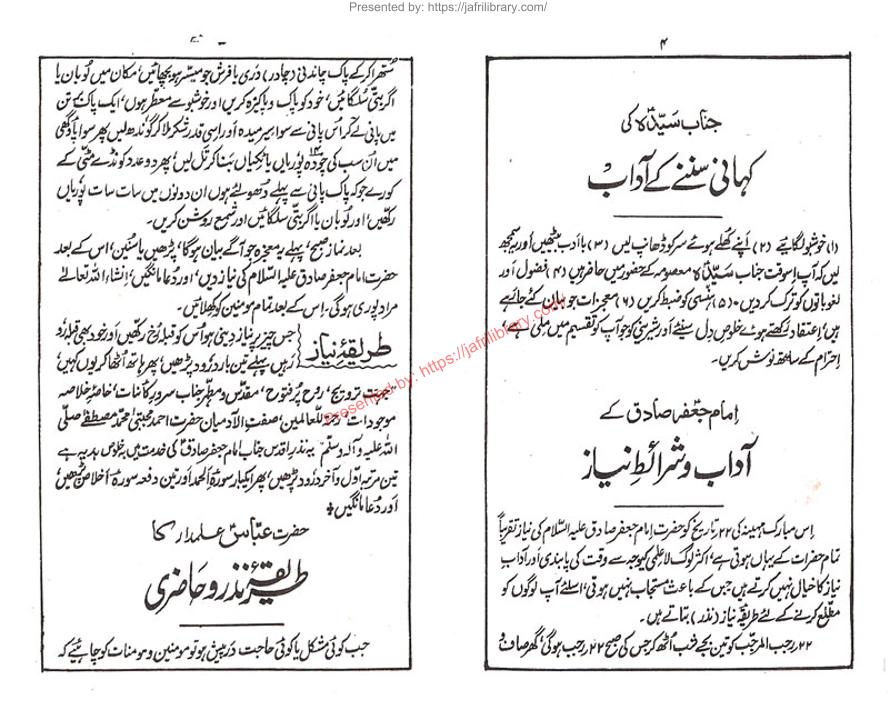 Presented by: https://jafrilibrary.com/
۴
جناب سیّدہؑ کی
کہانی سننے کے آداب
(۱) خوشبو لگائیے (۲) اپنے کھُلے ہوئے سر کو ڈھانپ لیں (۳) با ادب بیٹھیں اور یہ سمجھ
لیں کہ آپ اِسوقت جناب سیّدہؑ معصومہ کے حضور میں حاضر ہیں (۴) فضول اور
لغو باتوں کو ترک کردیں۔ (۵) ہنسی کو ضبط کریں (۶) معجزات جو بیان کئے جارہے
ہیں، اِعتقاد رکھتے ہوئے خلوصِ دِل سنئے اور شیرینی جو آپ کو تقسیم میں ملی ہے،
اِحترام کے ساتھ نوش کریں۔
اِمام جعفر صادقؑ کے
آداب و شرائطِ نیاز
اِس مبارک مہینہ کی ۲۲ تاریخ کو حضرت اِمام جعفر صادق علیہ السّلام کی نیاز تقریباً
تمام حضرات کے یہاں ہوتی ہے، اکثر لوگ لاعلمی کیوجہ سے وقت کی پابندی اور آدابِ
نیاز کا خیال نہیں کرتے ہیں جس کے باعث مستجاب نہیں ہوتی، اسلئے آپ لوگوں کو
مطلع کرنے کے لئے طریقۂ نیاز (نذر) بتاتے ہیں۔
۲۲ رجب المرجب کو تین بجے شب اُٹھ کر جس کی صبح ۲۲ رجب ہوگی، گھر صاف و
سُتھرا کرکے پاک چاندنی (چادر) دَری یا فرش جو میسّر ہو بچھائیں، مکان میں لُوبان یا
اگر بتّی سُلگائیں، خود کو پاک و پاکیزہ کریں اور خوشبو سے معطّر ہوں، ایک پاک برتن
میں پانی لے کر اُس پانی سے سوا سیر میدہ اور اِسی قدر شکر ملا کر گوندھ لیں پھر سوا پاؤ گھی
میں اُن سب کی چودہ ۱۴ پُوریاں یا ٹِکیاں بنا کر تل لیں، پھر دو عدد کونڈے مٹّی کے
کورے جو کہ پاک پانی سے پہلے دُھولئے ہوں ان دونوں میں سات سات پُوریاں
رکھیں، اور لُوبان یا اگر بتّی سلگائیں اور شمع روشن کریں۔
بعد نمازِ صبح، پہلے یہ معجزہ جو آگے بیان ہوگا، پڑھیں یا سُنیں، اس کے بعد
حضرت امام جعفر صادق علیہ السّلام کی نیاز دیں، اور دُعا مانگیں، انشاء اللہ تعالےٰ
مراد پوری ہوگی۔ اِس کے بعد تمام مومنین کو کھلائیں۔
طریقۂ نیاز
جس چیز پر نیاز دینی ہو اُس کو قبلہ رُخ رکھیں اور خود بھی قبلہ رُو
رہیں پہلے تین بار دُرود پڑھیں، پھر ہاتھ اُٹھا کر یوں کہیں
بجہتِ ترویح، روحِ پُر فتوح، مقدّس و مطہّر جناب سرورِ کائنات، خاصۂ خلاصۂ
موجودات رحمۃ للعالمین، صفت الآدمیان حضرت احمد مجتبیٰ محمّد مصطفےٰ صلّی
اللہ علیہ و آلہ وسلّم بہ نذرِ اقدس جناب امام جعفر صادقؑ کی خدمت میں بہ خلوص ہدیہ ہے
تین مرتبہ اوّل و آخر دُرود پڑھیں، پھر ایکبار سورۂ الحمد اور تین دفعہ سورۂ اخلاص پڑھیں،
اور دُعا مانگیں
حضرت عبّاسؑ علمدار کا
طریقۂ نذر و حاضری
جب کوئی مشکل یا کوئی حاجت درپیش ہو تو مومنین و مومنات کو چاہیئے کہ
Presented by: https://jafrilibrary.com/